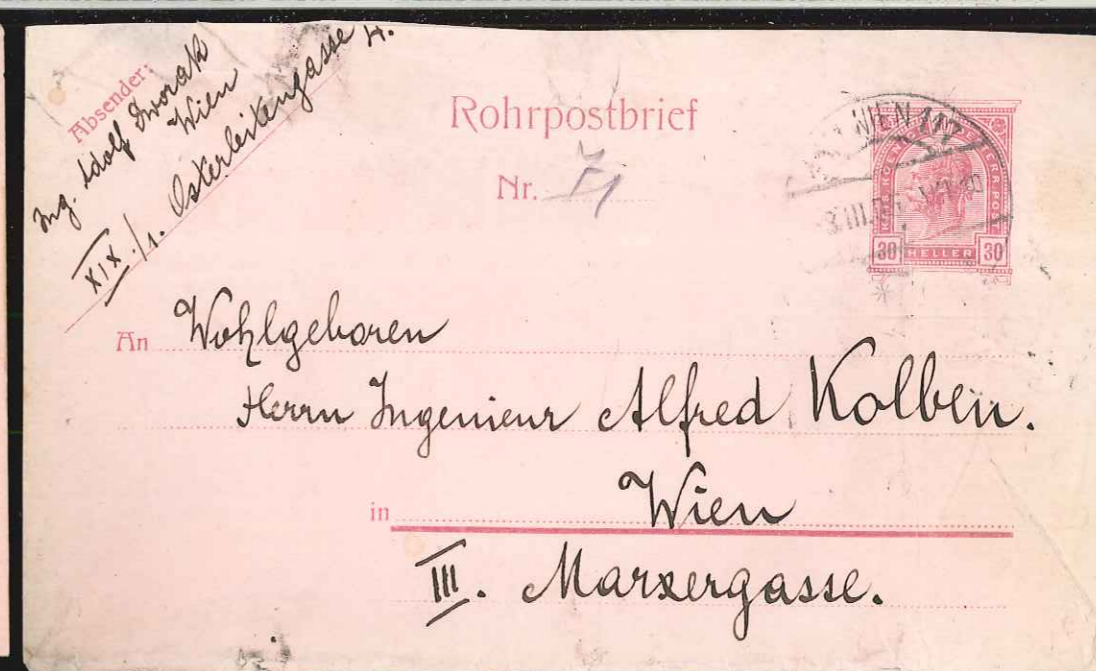 Absender:
Ing. Adolf Dworak
Wien
XIX./1. Osterleitengasse 4.
Rohrpostbrief
Nr.
WIEN 117
30 HELLER 30
An Wohlgeboren
Herrn Ingenieur Alfred Kolben.
in Wien
III. Marxergasse.